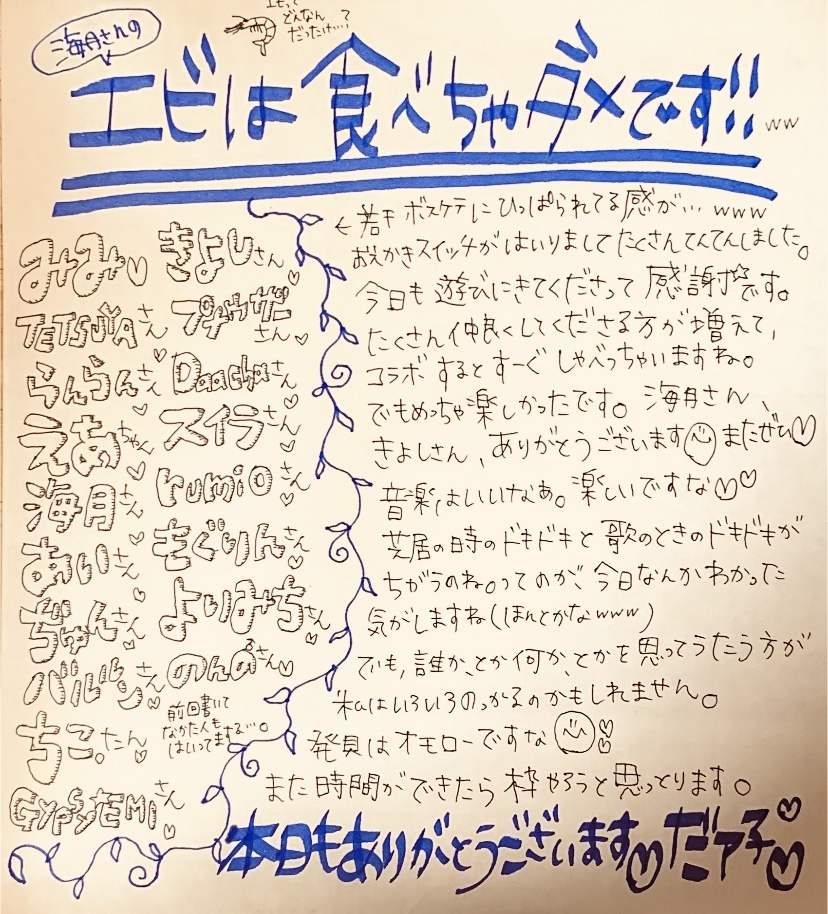 海月さんの
エビって
どんなん
だったけ…?
エビは食べちゃダメです!! ww
みみ♡
きよしさん♡
TETSUYAさん
プチャザビーさん♡
らんらんさん♡
Daachaさん♡
えあちゃん♡
スイラさん♡
海月さん♡
rumioさん♡
あいさん♡
もぐりんさん♡
ぢゅんさん♡
よりみちさん♡
バルビンさん♡
のんの さん♡
ちこ。たん♡
前回書いて
なかた人も
はいってます…。
GYPSY EMIさん♡
←若干ボスケテにひっぱられてる感が…www
おえかきスイッチがはいりましてたくさんてんてんしました。
今日も遊びにきてくださって感謝☆です。
たくさん仲良くしてくださる方が増えて、
コラボするとすーぐしゃべっちゃいますね。
でもめっちゃ楽しかったです。海月さん、
きよしさん、ありがとうございます またぜひ♡
音楽はいいなあ。楽しいですな♡♡
芝居の時のドキドキと歌のときのドキドキが
ちがうのね。ってのが、今日なんかわかった
気がしますね(ほんとかなwww)
でも、誰か、とか何か、とかを思ってうたう方が
私はいろいろのっかるのかもしれません。
発見はオモローですな
また時間ができたら枠やろうと思っとります。
本日もありがとうございます♡だァ子♡